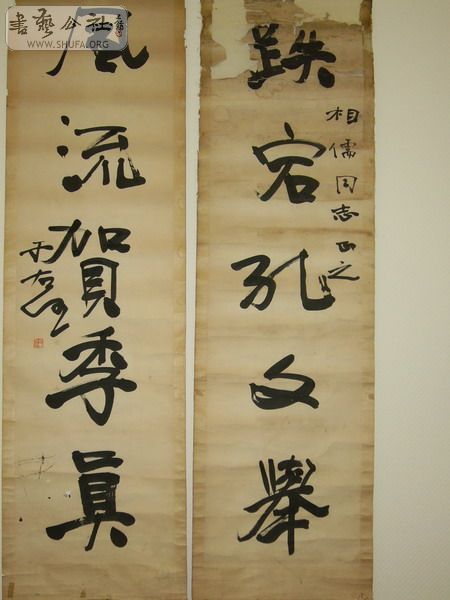 跌宕孔文舉
相儒同志正之
風流賀季眞
于右任
書藝公社
WWW.SHUFA.ORG